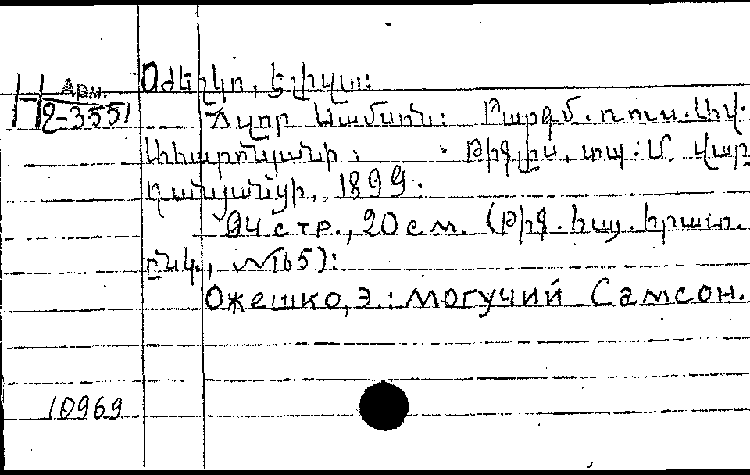 Арм.
Н 2-3551
Օժեշկո, Էլիզա։
Հզոր Սամսոն։ Թարգմ. ռուս. Լիվ.
Թիֆլիս, տպ. Մ. Վար
դանյանցի, 1899.
94 стр., 20 см. (Թիֆ. հայ. հրատ.
ընկ., №165)։
Ожешко, Э.: Могучий Самсон.
10969